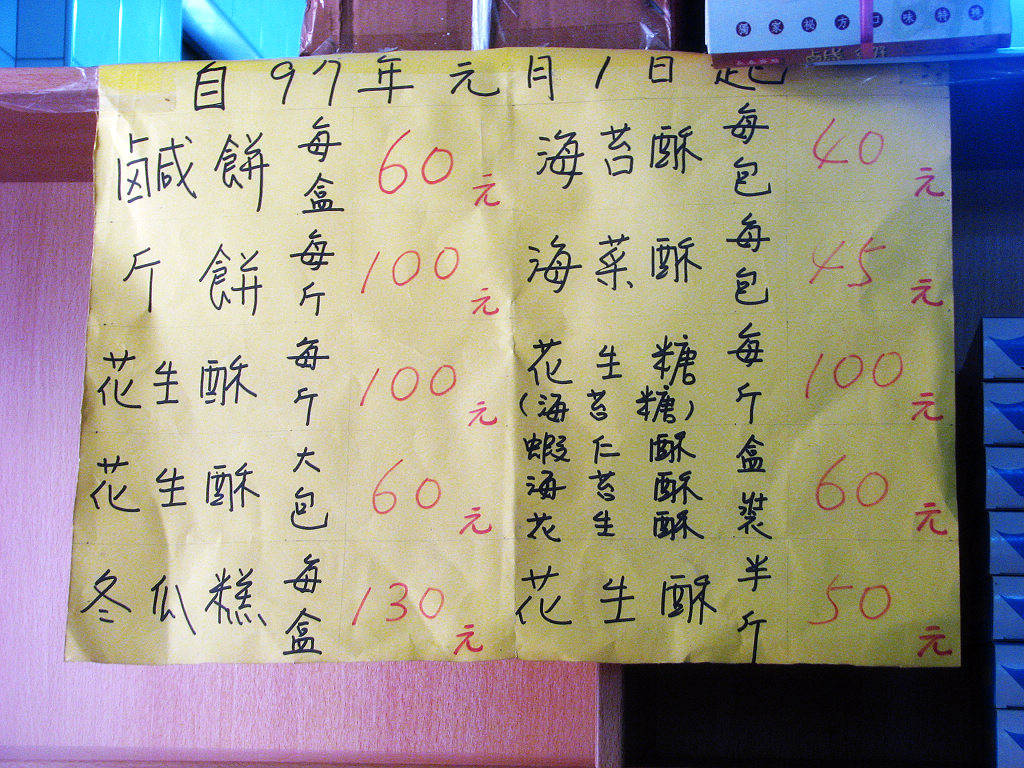 獨家秘方口味特殊
自97年元月1日起
鹹餅 每盒 60元
海苔酥 每包 40元
斤餅 每斤 100元
海菜酥 每包 45元
花生酥 每斤 100元
花生糖 每斤 100元
(海苔糖)
花生酥 大包 60元
蝦仁酥 盒裝 60元
海苔酥
花生酥
冬瓜糕 每盒 130元
花生酥 半斤 50元